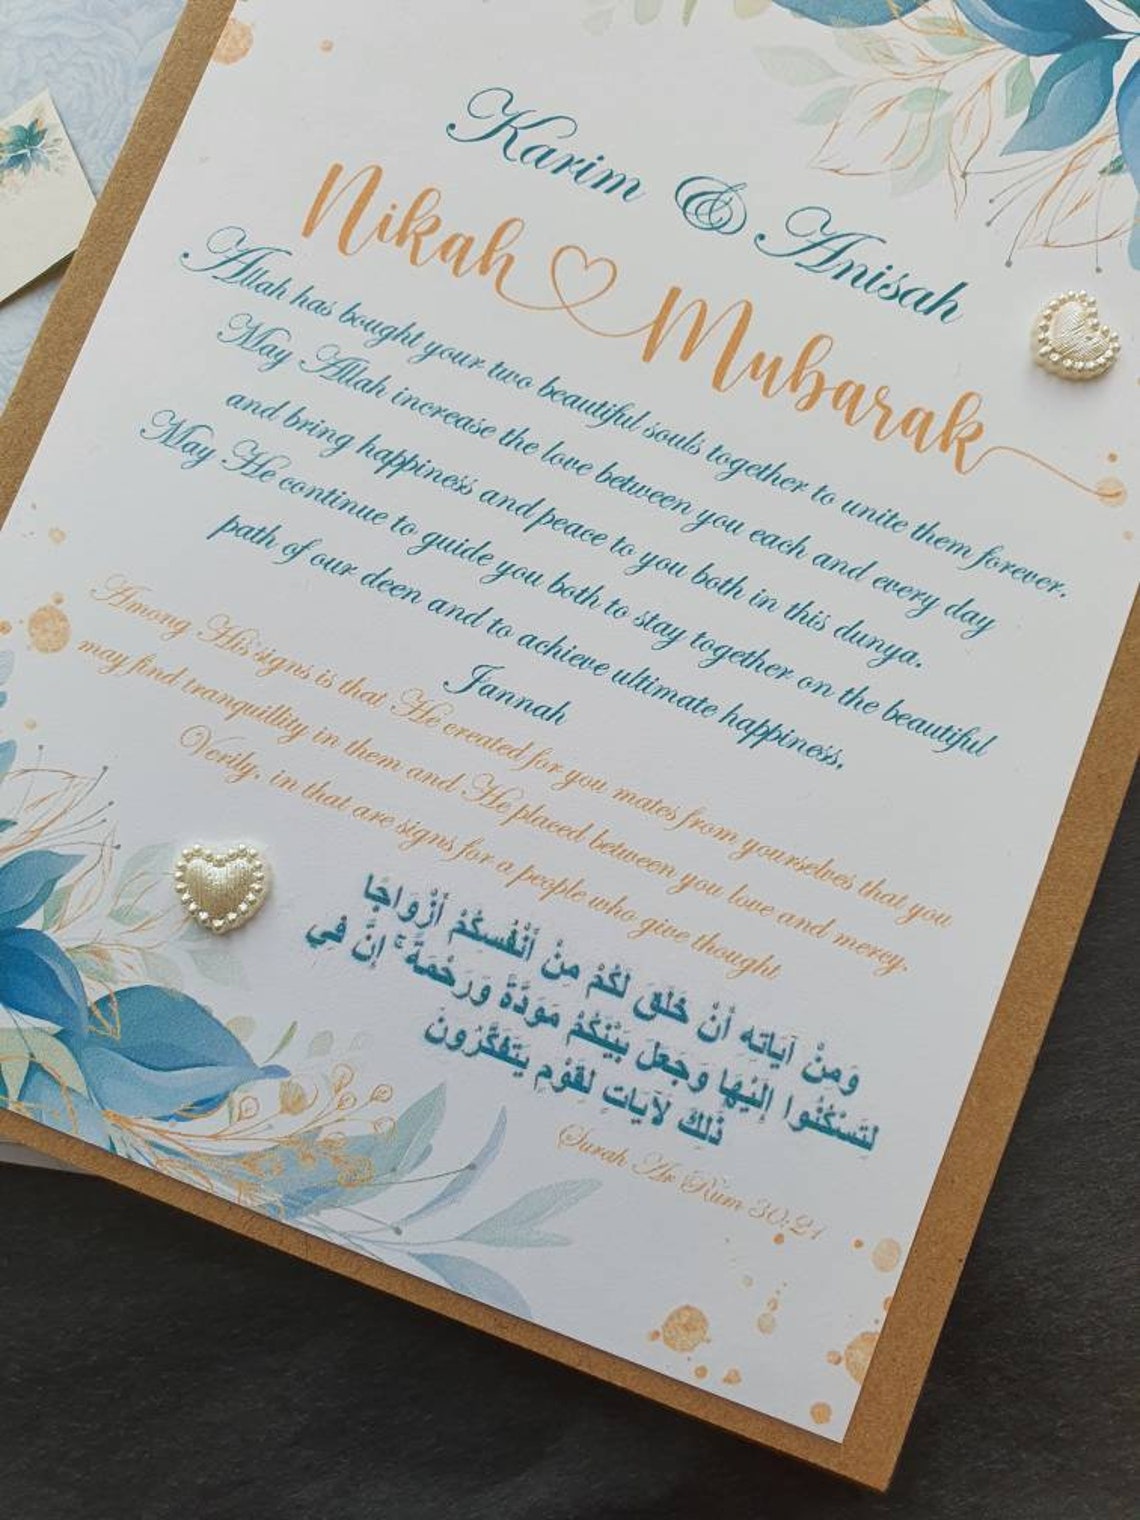 Karim & Anisah
Nikah Mubarak
Allah has bought your two beautiful souls together to unite them forever.
May Allah increase the love between you each and every day
and bring happiness and peace to you both in this dunya.
May He continue to guide you both to stay together on the beautiful
path of our deen and to achieve ultimate happiness,
Jannah
Among His signs is that He created for you mates from yourselves that you
may find tranquillity in them and He placed between you love and mercy.
Verily, in that are signs for a people who give thought
وَمِنْ آيَاتِهِ أَنْ خَلَقَ لَكُمْ مِنْ أَنْفُسِكُمْ أَزْوَاجًا
لِتَسْكُنُوا إِلَيْهَا وَجَعَلَ بَيْنَكُمْ مَوَدَّةً وَرَحْمَةً ۚ إِنَّ فِي
ذَٰلِكَ لَآيَاتٍ لِقَوْمٍ يَتَفَكَّرُونَ
(Surah Ar Rum 30:21